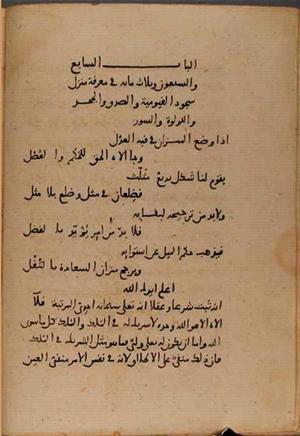 الباب السابع
والسبعون وثلاث مائة في معرفة منزل
سجود القيومية والصدق والمجد
واللؤلؤة والسور
اذا وضع الميزان في قبة العدل
وجا الاء الحق للحكم والفصل
يقوم لنا شكل بديع مثلث
فضلعان في مثل وضلع بلا مثل
ولابد من ترجيحه لبقايه
فلا بد من امر يؤيد بالفضل
فيذهب حكم الميل عن استوايه
ويرجح ميزان السعادة بالثقل
اعلم ايدك الله
انه ثبت شرعا وعقلا انه تعالى سبحانه احدي المرتبة فلا
اله الا هو الله وحده لا شريك له في الملك والملك كل ما سوى
الله واما ان يكون له تعالى ولي فما هو مثل الشريك في الملك
فان ذلك منفي على الاطلاق لانه في نفس الامر منفي العين